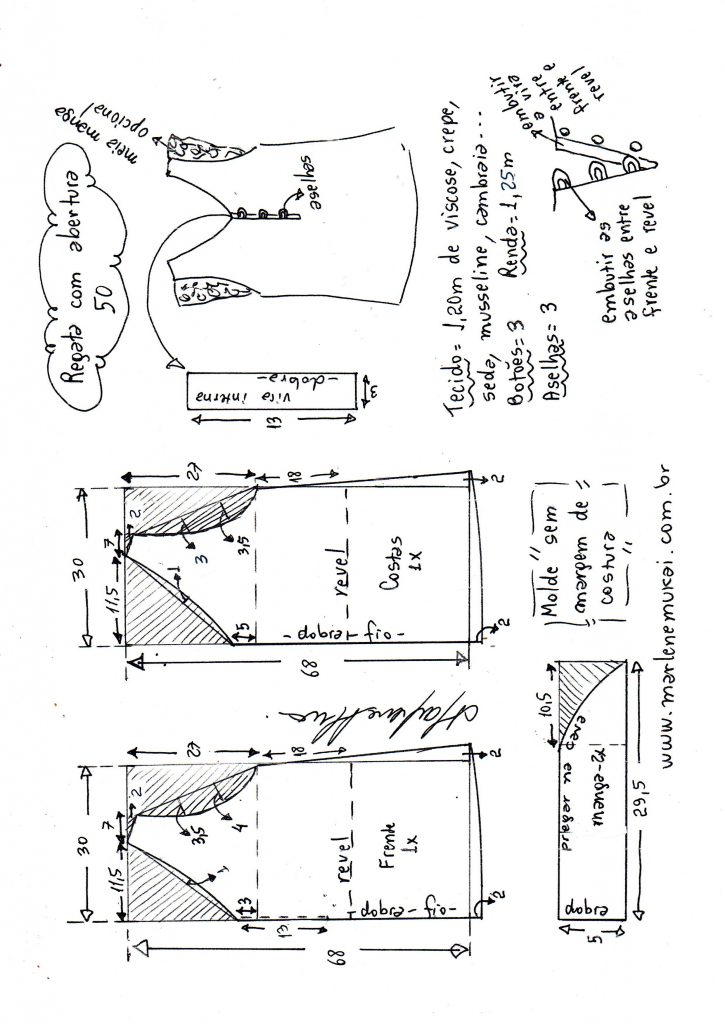 Regata com abertura
50
meia manga
opcional
aselhas
vira interna
-dobra-
13
3
Tecido= 1,20m de viscose, crepe,
seda, musseline, cambraia...
Botões= 3 Renda= 1,25m
Aselhas= 3
embutir
a vira
entre
frente e
revel
embutir as
aselhas entre
frente e revel
30
11,5
7
2
27
1
3
3,5
18
5
68
revel
Costas
1x
-dobra-fio-
2
2
30
11,5
7
2
27
1
3,5
4
18
3
13
68
revel
Frente
1x
dobra-fio-
2
2
Molde sem
margem de
costura
10,5
pregar na cava
manga-2x
dobra
5
29,5
www.marlenemukai.com.br